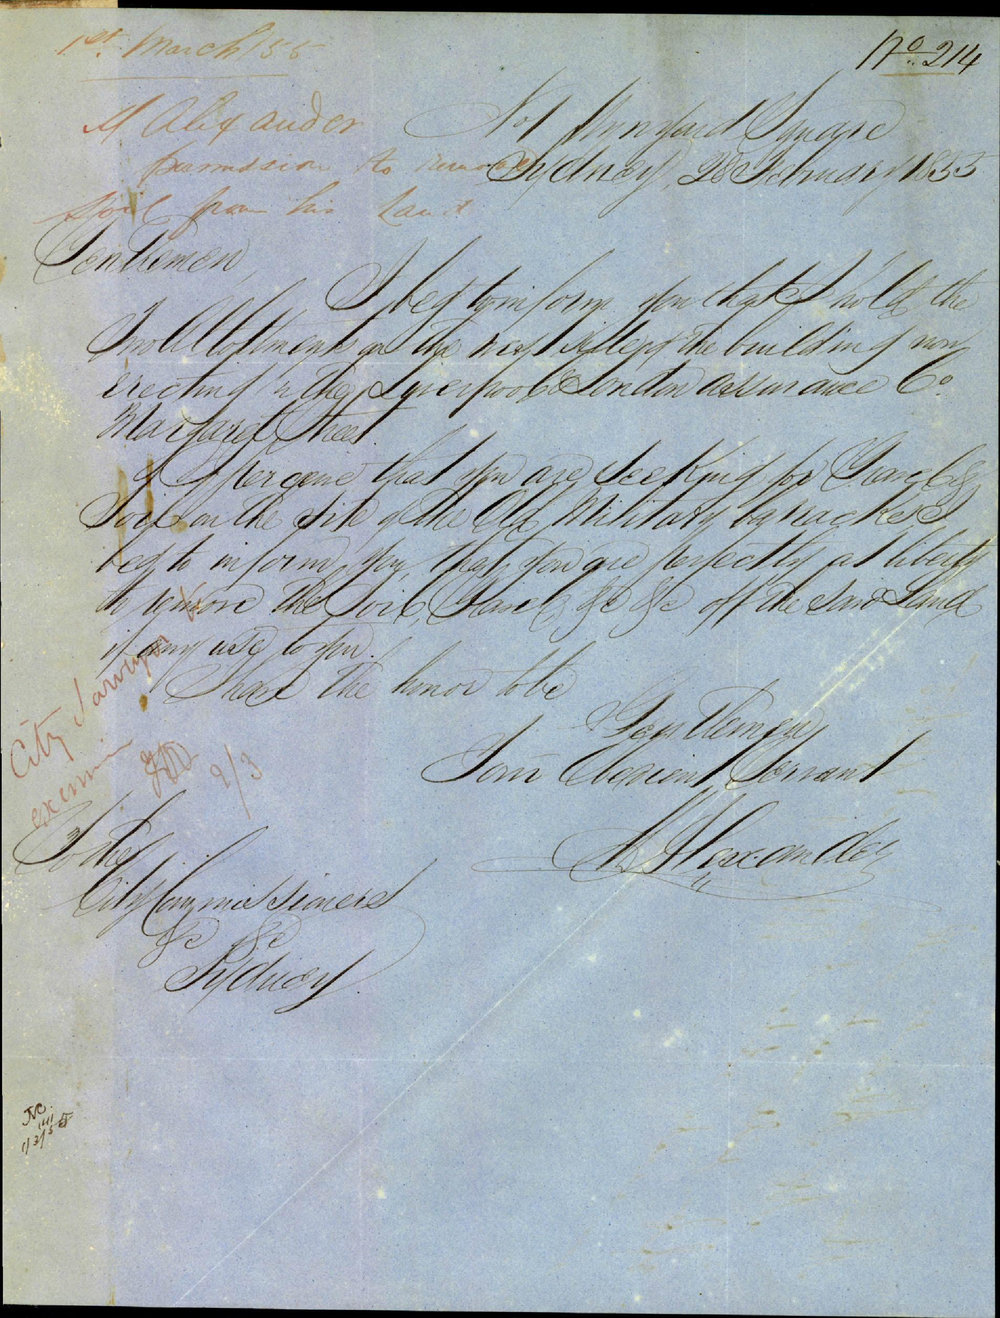 1st March /55
No. 214
M Alexander
permission to remove
soil from his Land
No 1 Wynyard Square
Sydney, 28 February 1855
Gentlemen
I beg to inform you that I hold the
two Allotments on the west side of the building now
erecting by the Liverpool & London assurance Co.
Margaret Street
I perceive that you are seeking for Gravel &
Soil on the site of the Old Military barracks I
beg to inform you, that you are perfectly at liberty
to remove the Soil, Gravel, &c &c off the said Land
if any use to you.
I have the honor to be
Gentlemen
Your Obedient Servant
M Alexander
City Surveyor to
examine
2/3
To the
City Commissioners
&c &c
Sydney
1/3/55